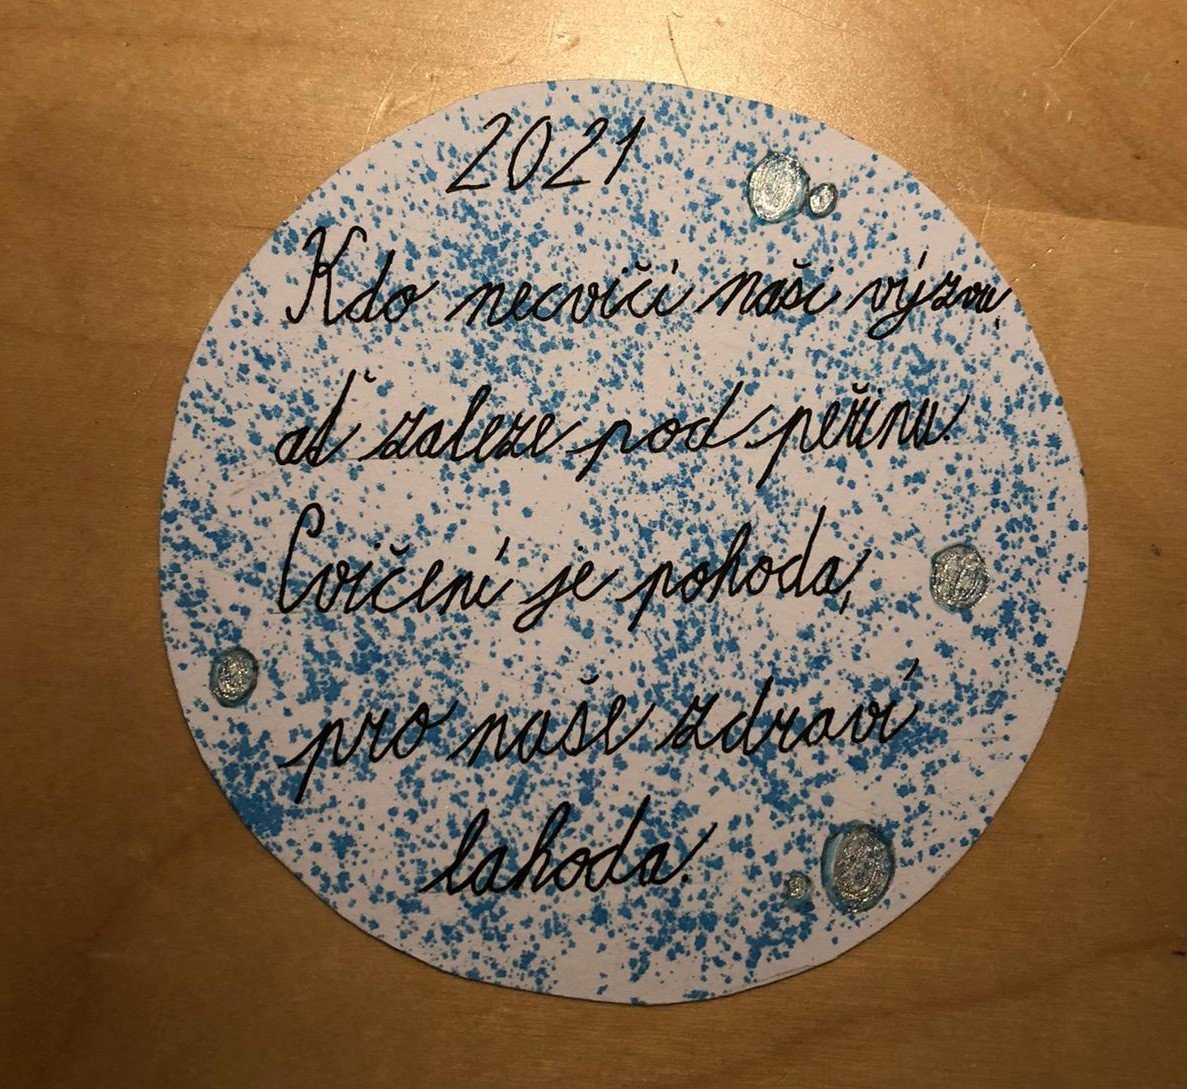 2021
Kdo necvičí naši výzvu,
ať zaleze pod peřinu.
Cvičení je pohoda,
pro naše zdraví
lahoda.